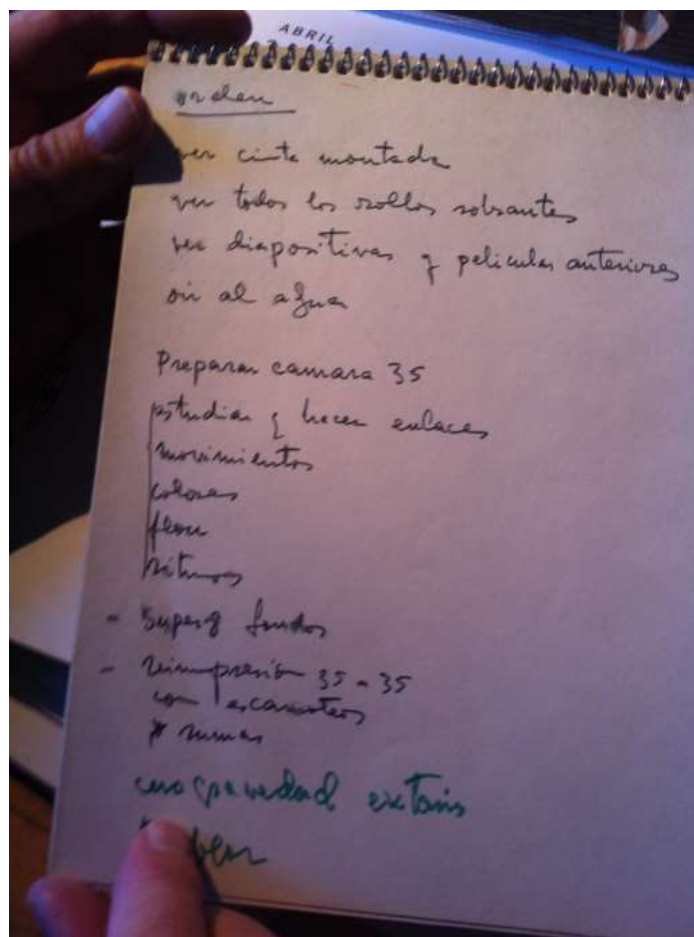 ABRIL
orden
ver cinta montada
ver todos los rollos sobrantes
ver diapositivas y peliculas anteriores
oir al agua
Preparar camara 35
estudiar y hacer enlaces
movimientos
colores
flou
ritmos
- super 8 fondos
- reimpresión 35 - 35
con escamoteos
y sumas
cero gravedad extasis